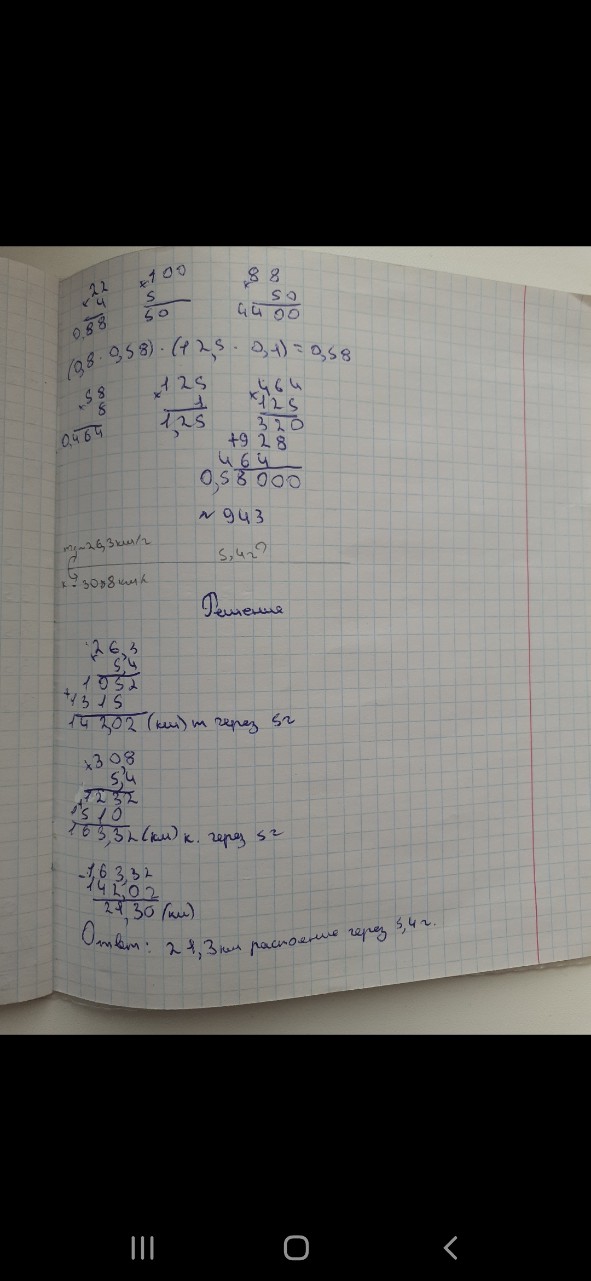 22 ×100 ×88
×4 5 50
0,88 50 4400
(0,8 · 0,58) · (12,5 · 0,1) = 0,58
×58 ×125 ×464
8 1 125
0,464 1,25 320
+928
464
0,58000
~ 943
26,3 км/г
5,4г?
30,8 км/
Решение
×26,3
5,4
1052
+1315
142,02 (км) т через 5г
×308
5,4
1232
1510
163,32 (км) к. через 5г
-163,32
142,02
21,30 (км)
Ответ: 21,3 км растоение через 5,4 г.